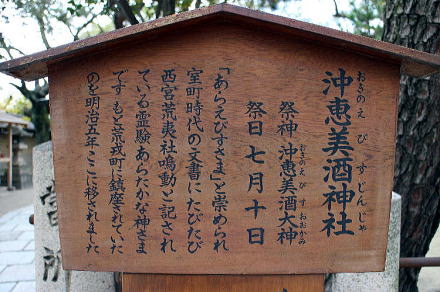 沖恵美酒神社
おきのえびすじんじゃ
祭神 沖恵美酒大神
おきのえびすおおかみ
祭日 七月十日
「あらえびすさま」と崇められ
室町時代の文書にたびたび
「西宮荒夷社鳴動」と記され
ている霊験あらたかな神さま
です もと荒戎町に鎮座されていた
のを明治五年ここに移されました